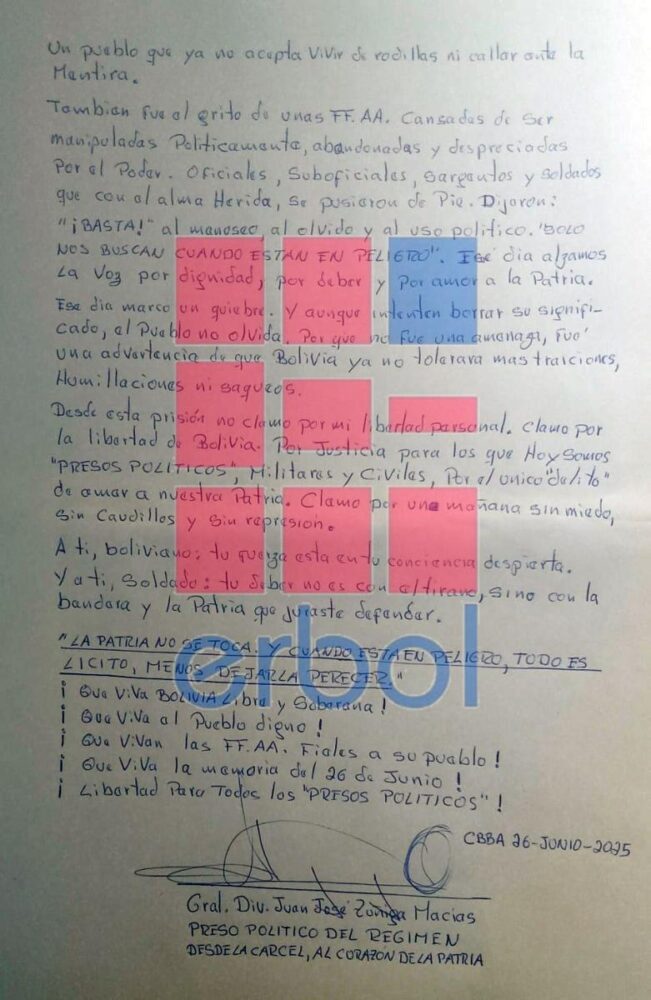 Un pueblo que ya no acepta vivir de rodillas ni callar ante la
Mentira.
Tambien fue el grito de unas FF.AA. Cansadas de ser
manipuladas Politicamente, abandonadas y despreciadas
Por el Poder. Oficiales, Suboficiales, Sargentos y Soldados
que con el alma Herida, se pusieron de Pie. Dijeron:
"¡BASTA!" al manoseo, al olvido y al uso politico. "SOLO
NOS BUSCAN CUANDO ESTAN EN PELIGRO". Ese dia alzamos
La Voz por dignidad, por deber y por amor a la Patria.
Ese dia marco un quiebre. Y aunque intenten borrar su signifi-
cado, el Pueblo no olvida. Por que no fue una amenaza, fue
una advertencia de que Bolivia ya no tolerara mas traiciones,
Humillaciones ni saqueos.
Desde esta prisión no clamo por mi libertad personal. Clamo por
la libertad de Bolivia. Por Justicia para los que Hoy somos
"PRESOS POLITICOS", Militares y Civiles, Por el unico "delito"
de amar a nuestra Patria. Clamo por una mañana sin miedo,
Sin Caudillos y Sin represion.
A ti, boliviano: tu fuerza esta en tu conciencia despierta.
Y a ti, Soldado: tu deber no es con el tirano, sino con la
bandera y la Patria que juraste defender.
"LA PATRIA NO SE TOCA. Y CUANDO ESTA EN PELIGRO, TODO ES
LICITO, MENOS DEJARLA PERECER."
¡ Que Viva BOLIVIA Libre y Soberana !
¡ Que Viva el Pueblo digno !
¡ Que Vivan las FF.AA. Fieles a su pueblo !
¡ Que Viva la memoria del 26 de Junio !
¡ Libertad Para Todos los "PRESOS POLITICOS" !
CBBA 26-JUNIO-2025
Gral. Div. Juan José Zuñiga Macias
PRESO POLITICO DEL REGIMEN
DESDE LA CARCEL, AL CORAZON DE LA PATRIA
erbol